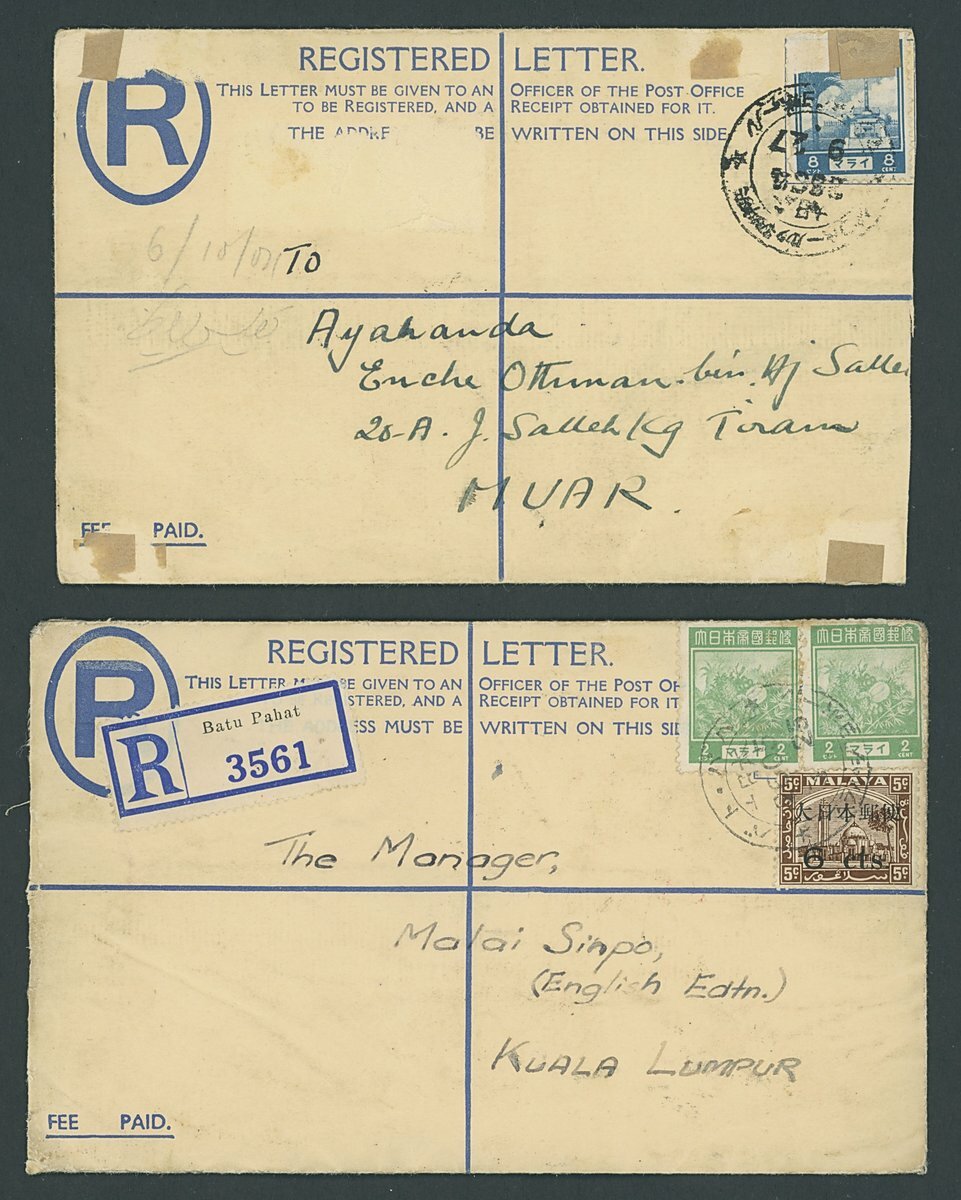 REGISTERED LETTER.
THIS LETTER MUST BE GIVEN TO AN OFFICER OF THE POST OFFICE
TO BE REGISTERED, AND A RECEIPT OBTAINED FOR IT.
THE ADDRE BE WRITTEN ON THIS SIDE
R
8 CENT マライ 8 CENT
6/10/04
TO
Ayahanda
Enche Othman bin Hj Salle
20-A. J. Salleh Kg Tiram
MUAR.
FEE PAID.
REGISTERED LETTER.
THIS LETTER M BE GIVEN TO AN OFFICER OF THE POST OF
ISTERED, AND A RECEIPT OBTAINED FOR IT
ESS MUST BE WRITTEN ON THIS SID
R
Batu Pahat
R 3561
大日本帝國郵便 大日本帝國郵便
2 CENT マライ 2 CENT 2 CENT マライ 2 CENT
5c MALAYA 5c
大日本郵便
6 cts.
5c سلاڠور 5c
The Manager,
Malai Sinpo,
(English Edtn.)
KUALA LUMPUR
FEE PAID.